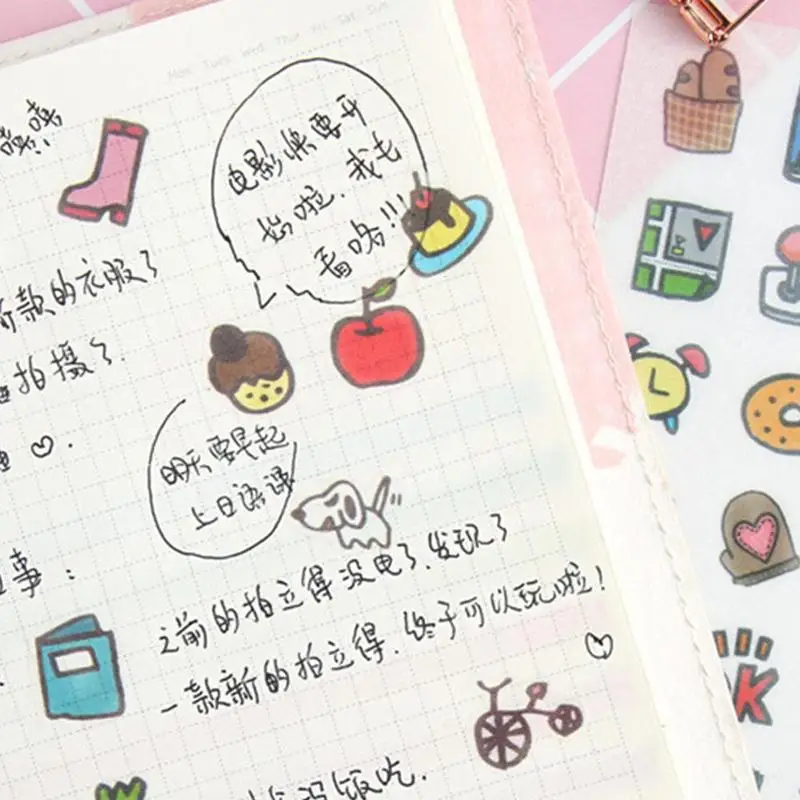 Mon Tues Wed Thur Fri Sat Sun
嘻嘻
电影快要开
始啦,我去
看咯!!!
新款的衣服了
拍摄了.
明天要早起
上日语课
事:
之前的拍立得没电了,发现了
一款新的拍立得,终于可以玩啦!
没饭吃.
K